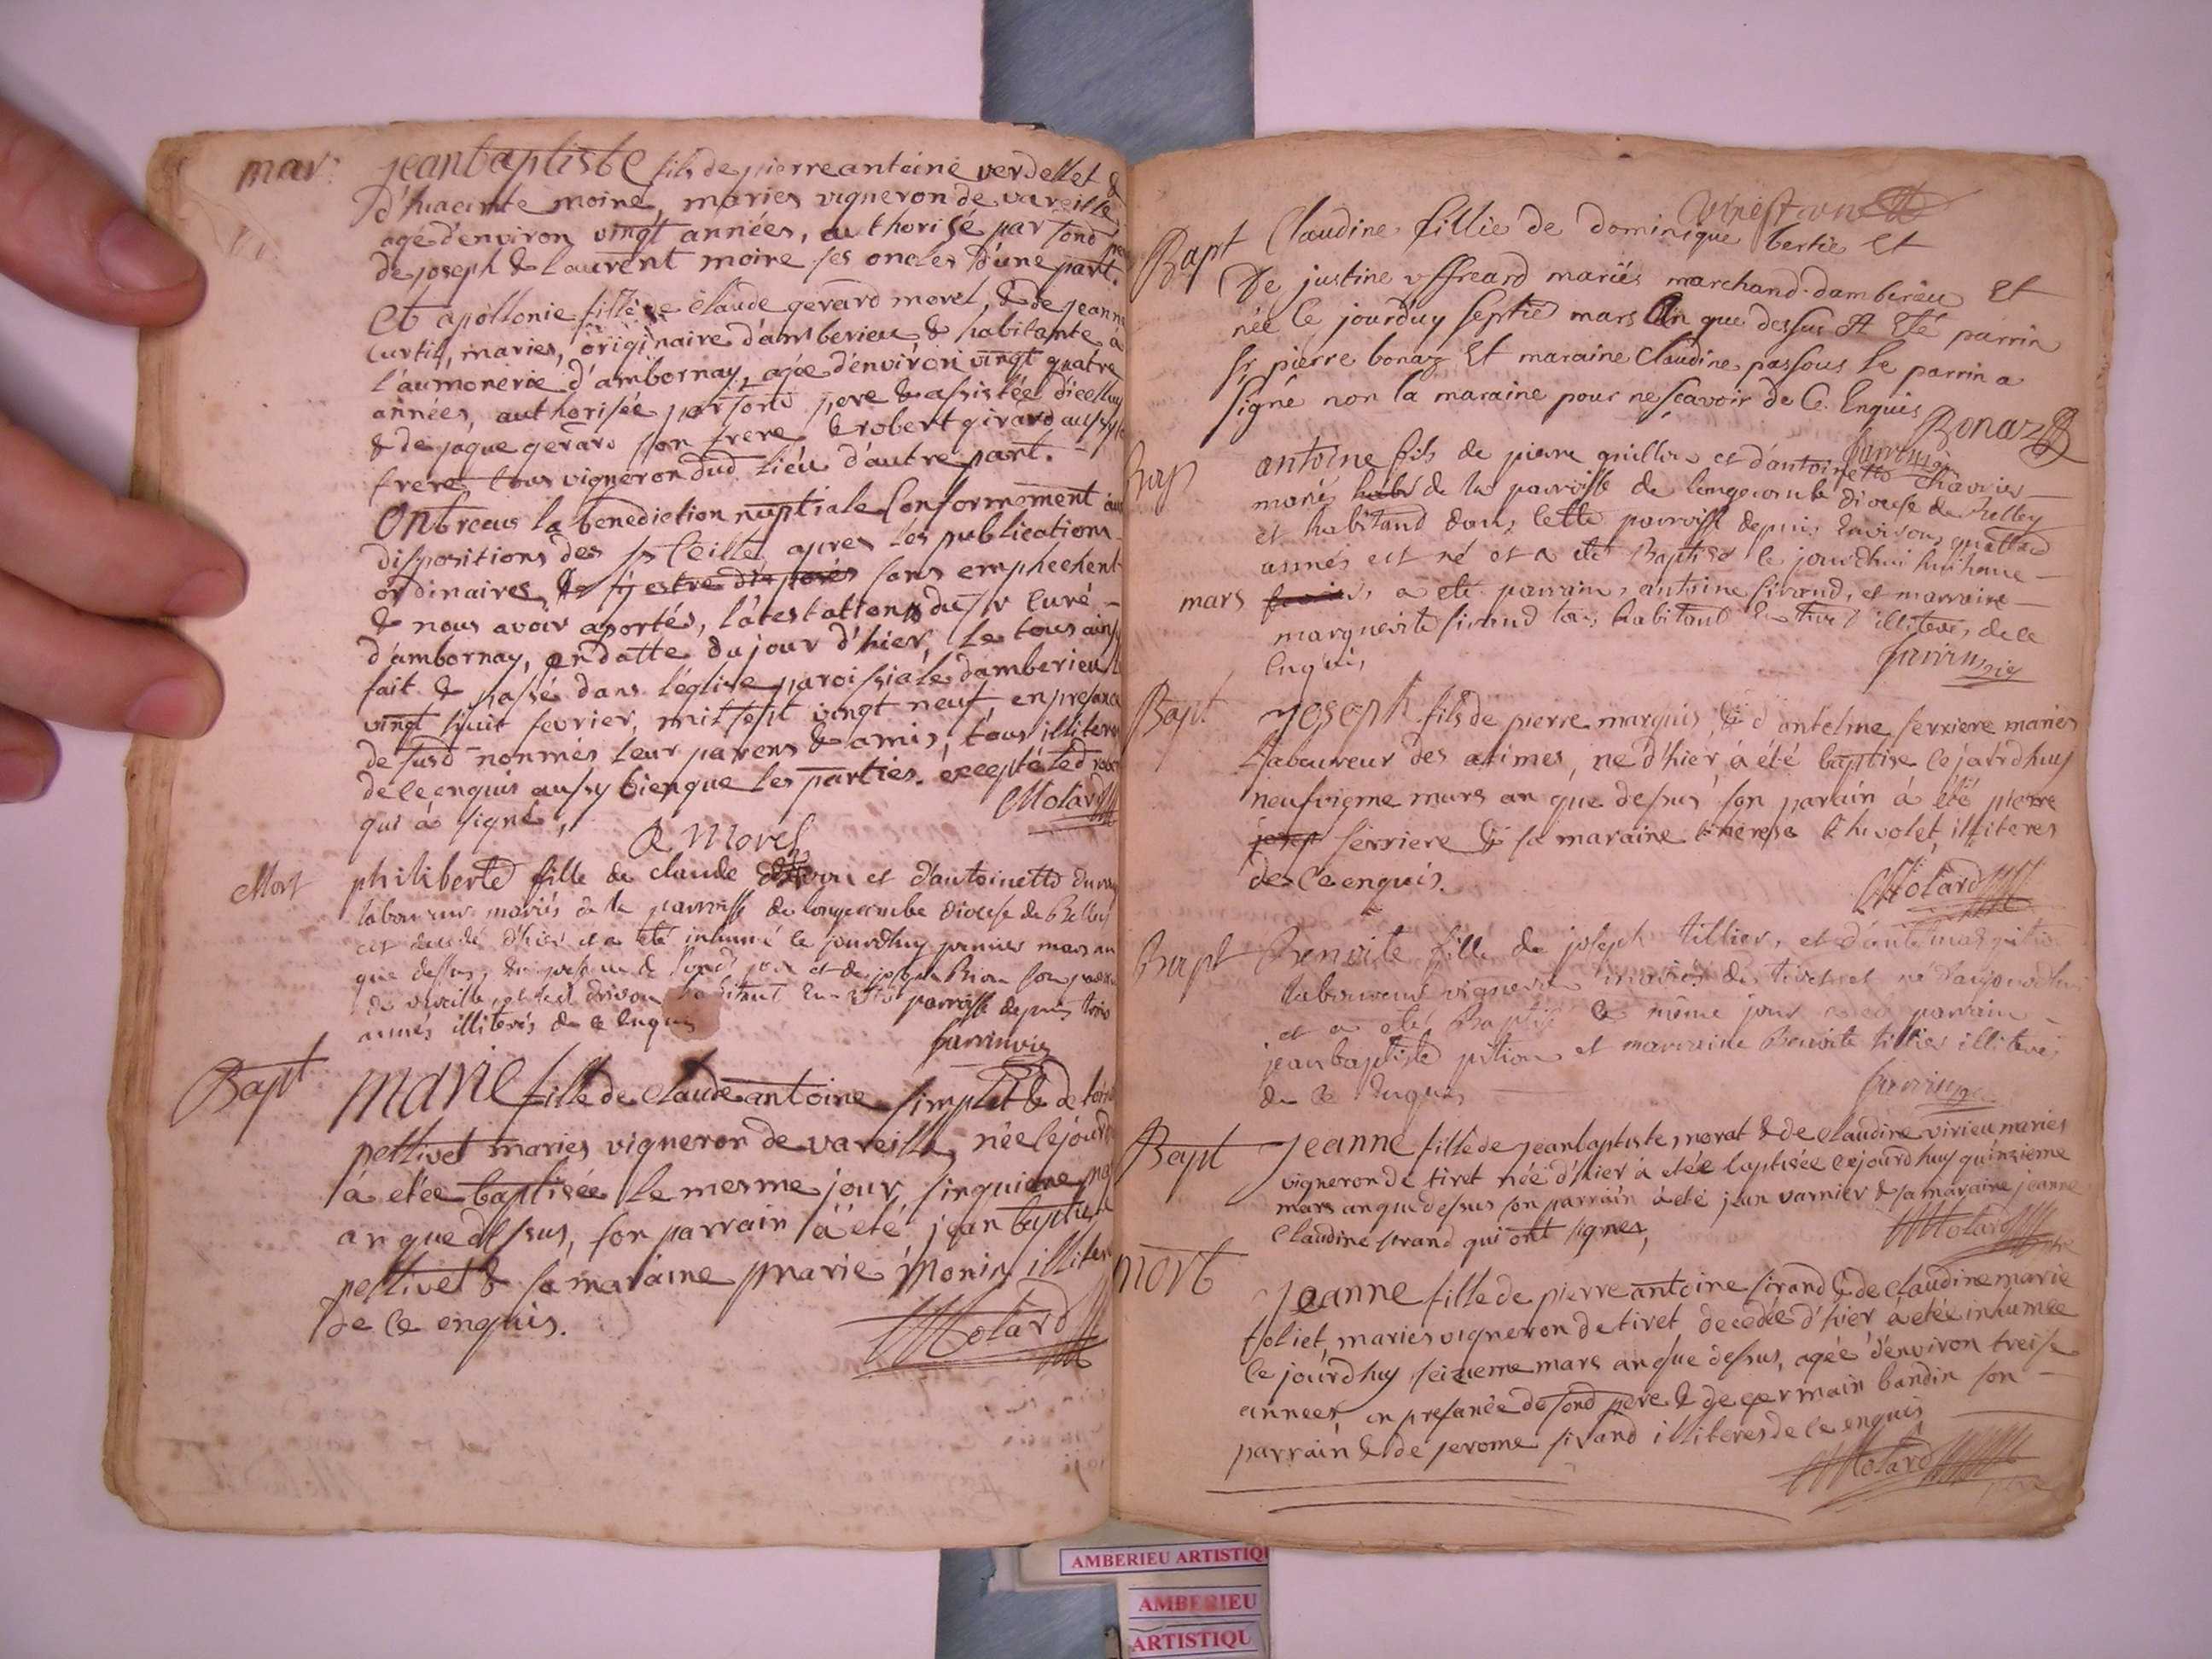 mar: jeanbaptiste fils de pierre antoine verdellet &
d'hiacinte moine, maries vigneron de vareille
agé d'environ vingt années, authorisé par sond pere
de joseph & laurent moine ses oncles d'une part.
Et apollonie fille de claude gerard morel, & de jeanne
curtil, maries, originaire d'amberieu & habitante à
l'aumonerie d'ambornay, agée d'environ vingt quatre
années, authorisée par sond pere & assistée d'icelluy
& de jaque gerard son frere & robert girard aussy
freres tous vigneron dud. lieu d'autre part.
Ont recus la benediction nuptiale conformement aux
dispositions des apres les publications
ordinaires, sans emphechent
& nous avoir aportés, l'atestation du sr curé
d'ambornay, en datte du jour d'hier, le tous ainsy
fait & passé dans l'église paroissiale d'amberieu le
vingt huit fevrier, mil sept vingt neuf, en presence
de susd nonmés leur parens & amis, tous illiteres
de ce enquis aussy bien que les parties. excepté led
qui à signé, Molard
Morel
Mort philiberte fille de claude et d'antoinette
laboureur mariés de la parroisse de longecombe diocese de Belley
est decedé d'hier et a eté inhumé le jourdhuy premier mars an
que dessus, en presence de sond pere et de joseph Brun son
de vareille habitant en cette parroisse depuis trois
annés illiterés de ce enquis
Bapt marie fille de claude antoine simplet & de
pellivet maries vigneron de vareille, née cejourd
à etée baptisée le mesme jour sinquieme
an que dessus, son parrain à eté jean baptiste
pellivet & sa maraine marie monin illiteres
de ce enquis. Molard
Bapt Claudine fillie de dominique bertie Et
De justine uffreard mariés marchand d'amberieu Et
née le jourduy septie mars an que dessus A Eté parrin
sr pierre bonaz Et maraine Claudine passous le parrin a
signé non la maraine pour ne sçavoir de Ce Enquis Bonaz
Bap antoine fils de pierre guillon et d'antoinette
mariés de la parroisse de longecombe diocese de belley
et habitand dans cette parroisse depuis environs quattre
annés est né et a eté Baptisé le jourdhui huitieme
mars a eté parrain, antoine sirand, et marraine
marguerite sirand tous habitand en tiret illiteres de ce
Enquis
Bapt joseph fils de pierre marquis, & d'anteline ferriere maries
Laboureur des alimes, né d'hier, à été baptise cejourdhuy
neufvieme mars an que dessus son parain à été pierre
ferriere & sa maraine therese chevolet, illiteres
des ce enquis. Molard
Bapt Benoite fille de joseph tillier, et d'
laboureur vigneron mariés de tiret est né d'aujourdhui
et a eté Baptisé le même jour a eté parrain
jean baptiste pition et marraine Benoite tillier illiterés
de ce Enquis
Bapt Jeanne fille de jean baptiste morat & de claudine virieu maries
vigneron de tiret née d'hier à etée baptisée cejourdhuy quinzieme
mars an que dessus son parrain à eté jean varnier & sa maraine jeanne
claudine sirand qui ont signes, Molard
mort Jeanne fille de pierre antoine sirand & de claudine marie
foliet, maries vigneron de tiret decedée d'hier à etée inhumée
ce jourdhuy seizieme mars an que dessus, agée d'environ treise
années, en presance de sond pere & de germain bandin son
parrain & de jerome sirand illiteres de ce enquis
Molard
AMBERIEU ARTISTIQU
AMBERIEU
ARTISTIQU